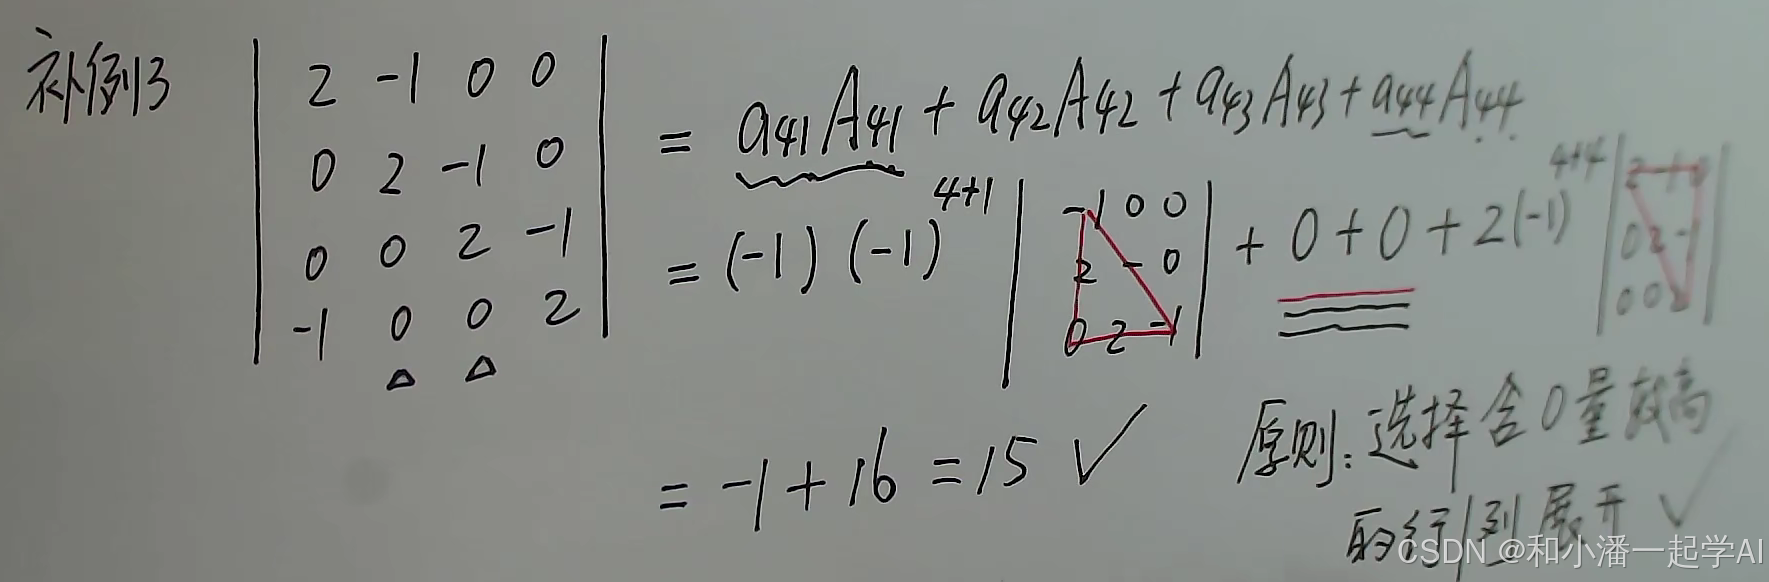 补例3
2 -1 0 0
0 2 -1 0
0 0 2 -1
-1 0 0 2
△ △
= a41A41 + a42A42 + a43A43 + a44A44
= (-1) (-1)^{4+1} | -1 0 0 | + 0 + 0 + 2(-1)^{4+4} | 2 -1 0 |
2 - 0
0 2 -1
0 2 -1
0 0 2
= -1 + 16 = 15 ✓
原则: 选择含0量较高
的行/列展开 ✓
CSDN @和小潘一起学AI